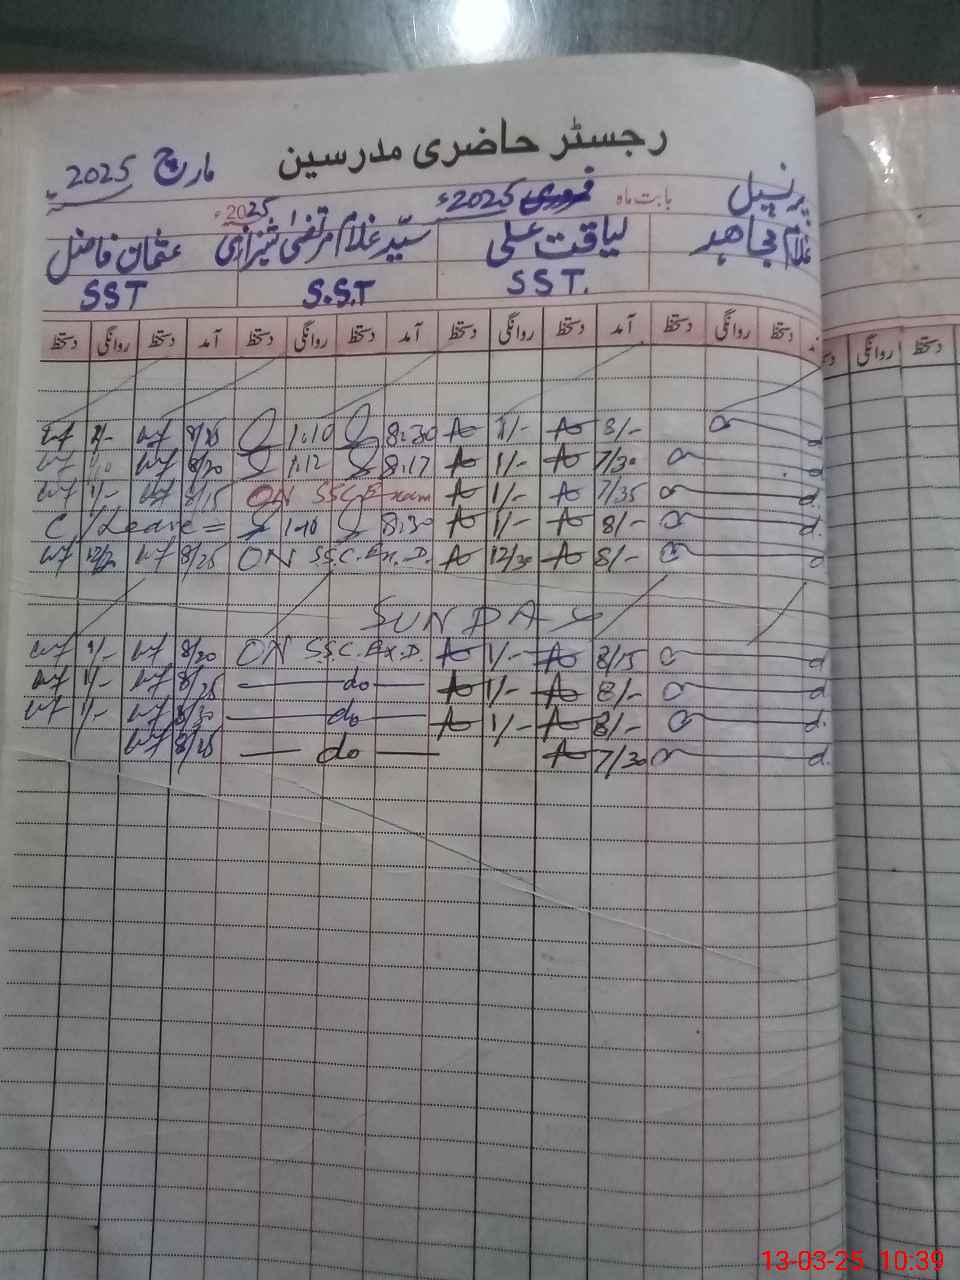 رجسٹر حاضری مدرسین
مارچ 2025ء
بابت ماہ فروری 2025ء 2025ء
پرنسپل
غلام مجاہد لیاقت علی سیّد غلام مرتضیٰ شیرازی عثمان فاضل
SST. S.S.T SST
دستخط روانگی دستخط آمد دستخط روانگی دستخط آمد دستخط روانگی دستخط آمد دستخط روانگی دستخط
دستخط روانگی
8/- 1/- 8:30 1:10 8/25 1/-
7/30 1/- 8:17 1:12 8/20
7/35 1/- ON SSC Exam 8/15 1/-
8/- 1/- 8:30 1:10 C/Leave =
8/- 12/30 ON S.S.C. Ex. D. 8/25
SUNDAY
8/15 1/- ON S.S.C. Ex. D. 8/20 1/-
8/- 1/- do 8/25 1/-
8/- 1/- do 8/30 1/-
7/30 do 8/25
13-03-25 10:39